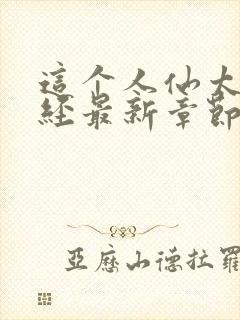 這个人仙太
經最新章節
亞歷山德拉羅